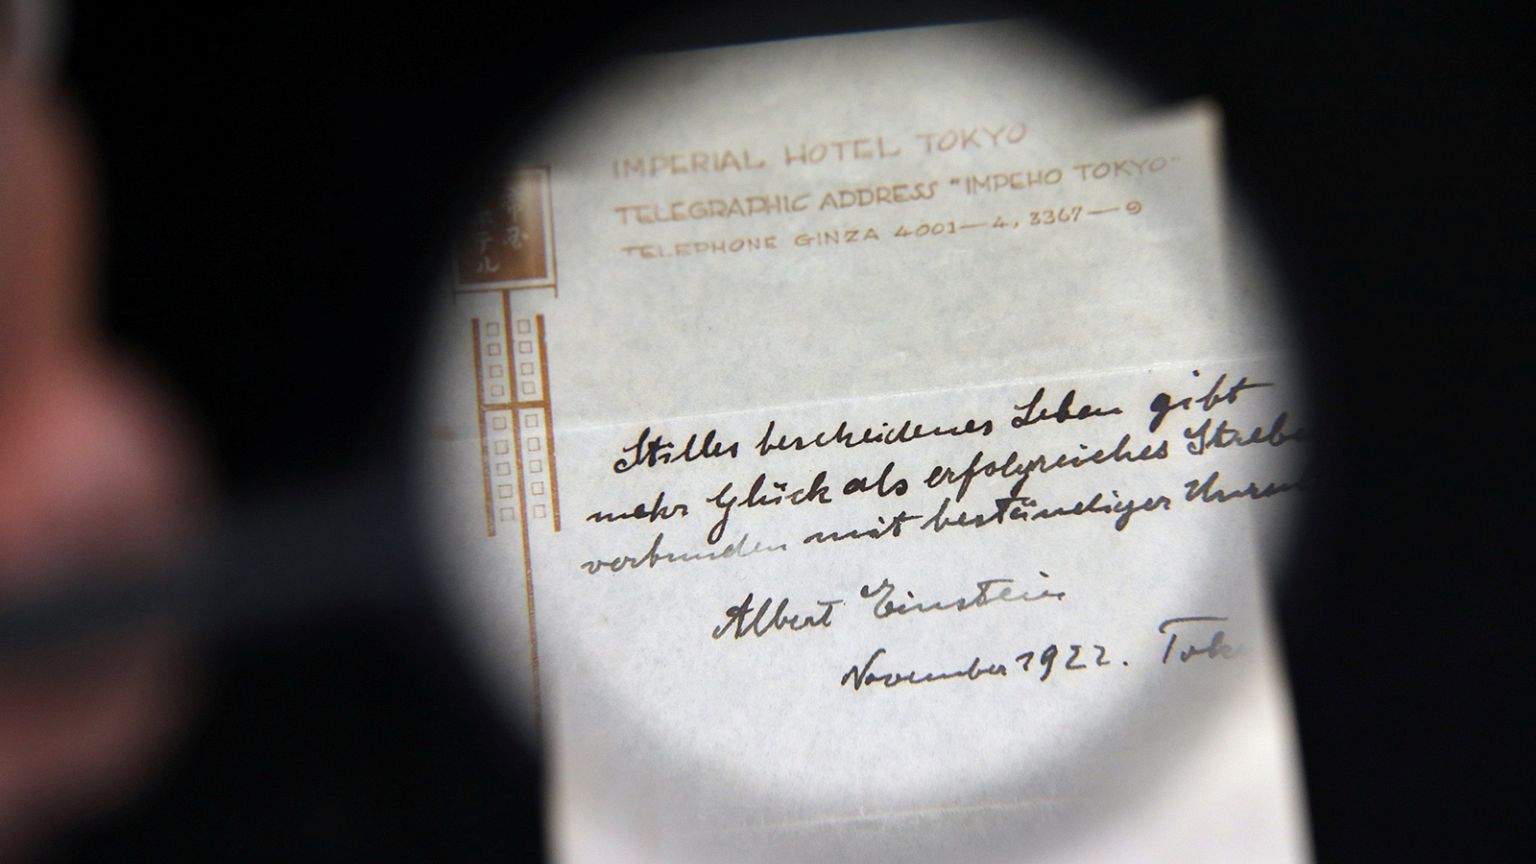 IMPERIAL HOTEL TOKYO
TELEGRAPHIC ADDRESS "IMPEHO TOKYO"
TELEPHONE GINZA 4001—4, 3367—9
帝国
ホテル
Stilles bescheidenes Leben gibt
mehr Glück als erfolgreiches Strebe
verbunden mit beständiger Unru
Albert Einstein
November 1922. Tok